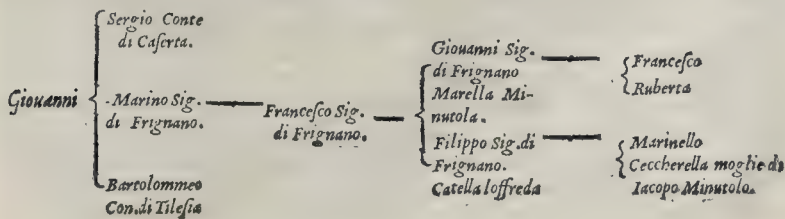 Giouanni
Sergio Conte
di Caserta.
Marino Sig.
di Frignano.
Bartolommeo
Con.di Tilesia
Francesco Sig.
di Frignano.
Giouanni Sig.
di Frignano
Marella Mi-
nutola.
Filippo Sig.di
Frignano.
Catella loffreda
Francesco
Ruberta
Marinello
Ceccherella moglie di
Iacopo Minutolo.